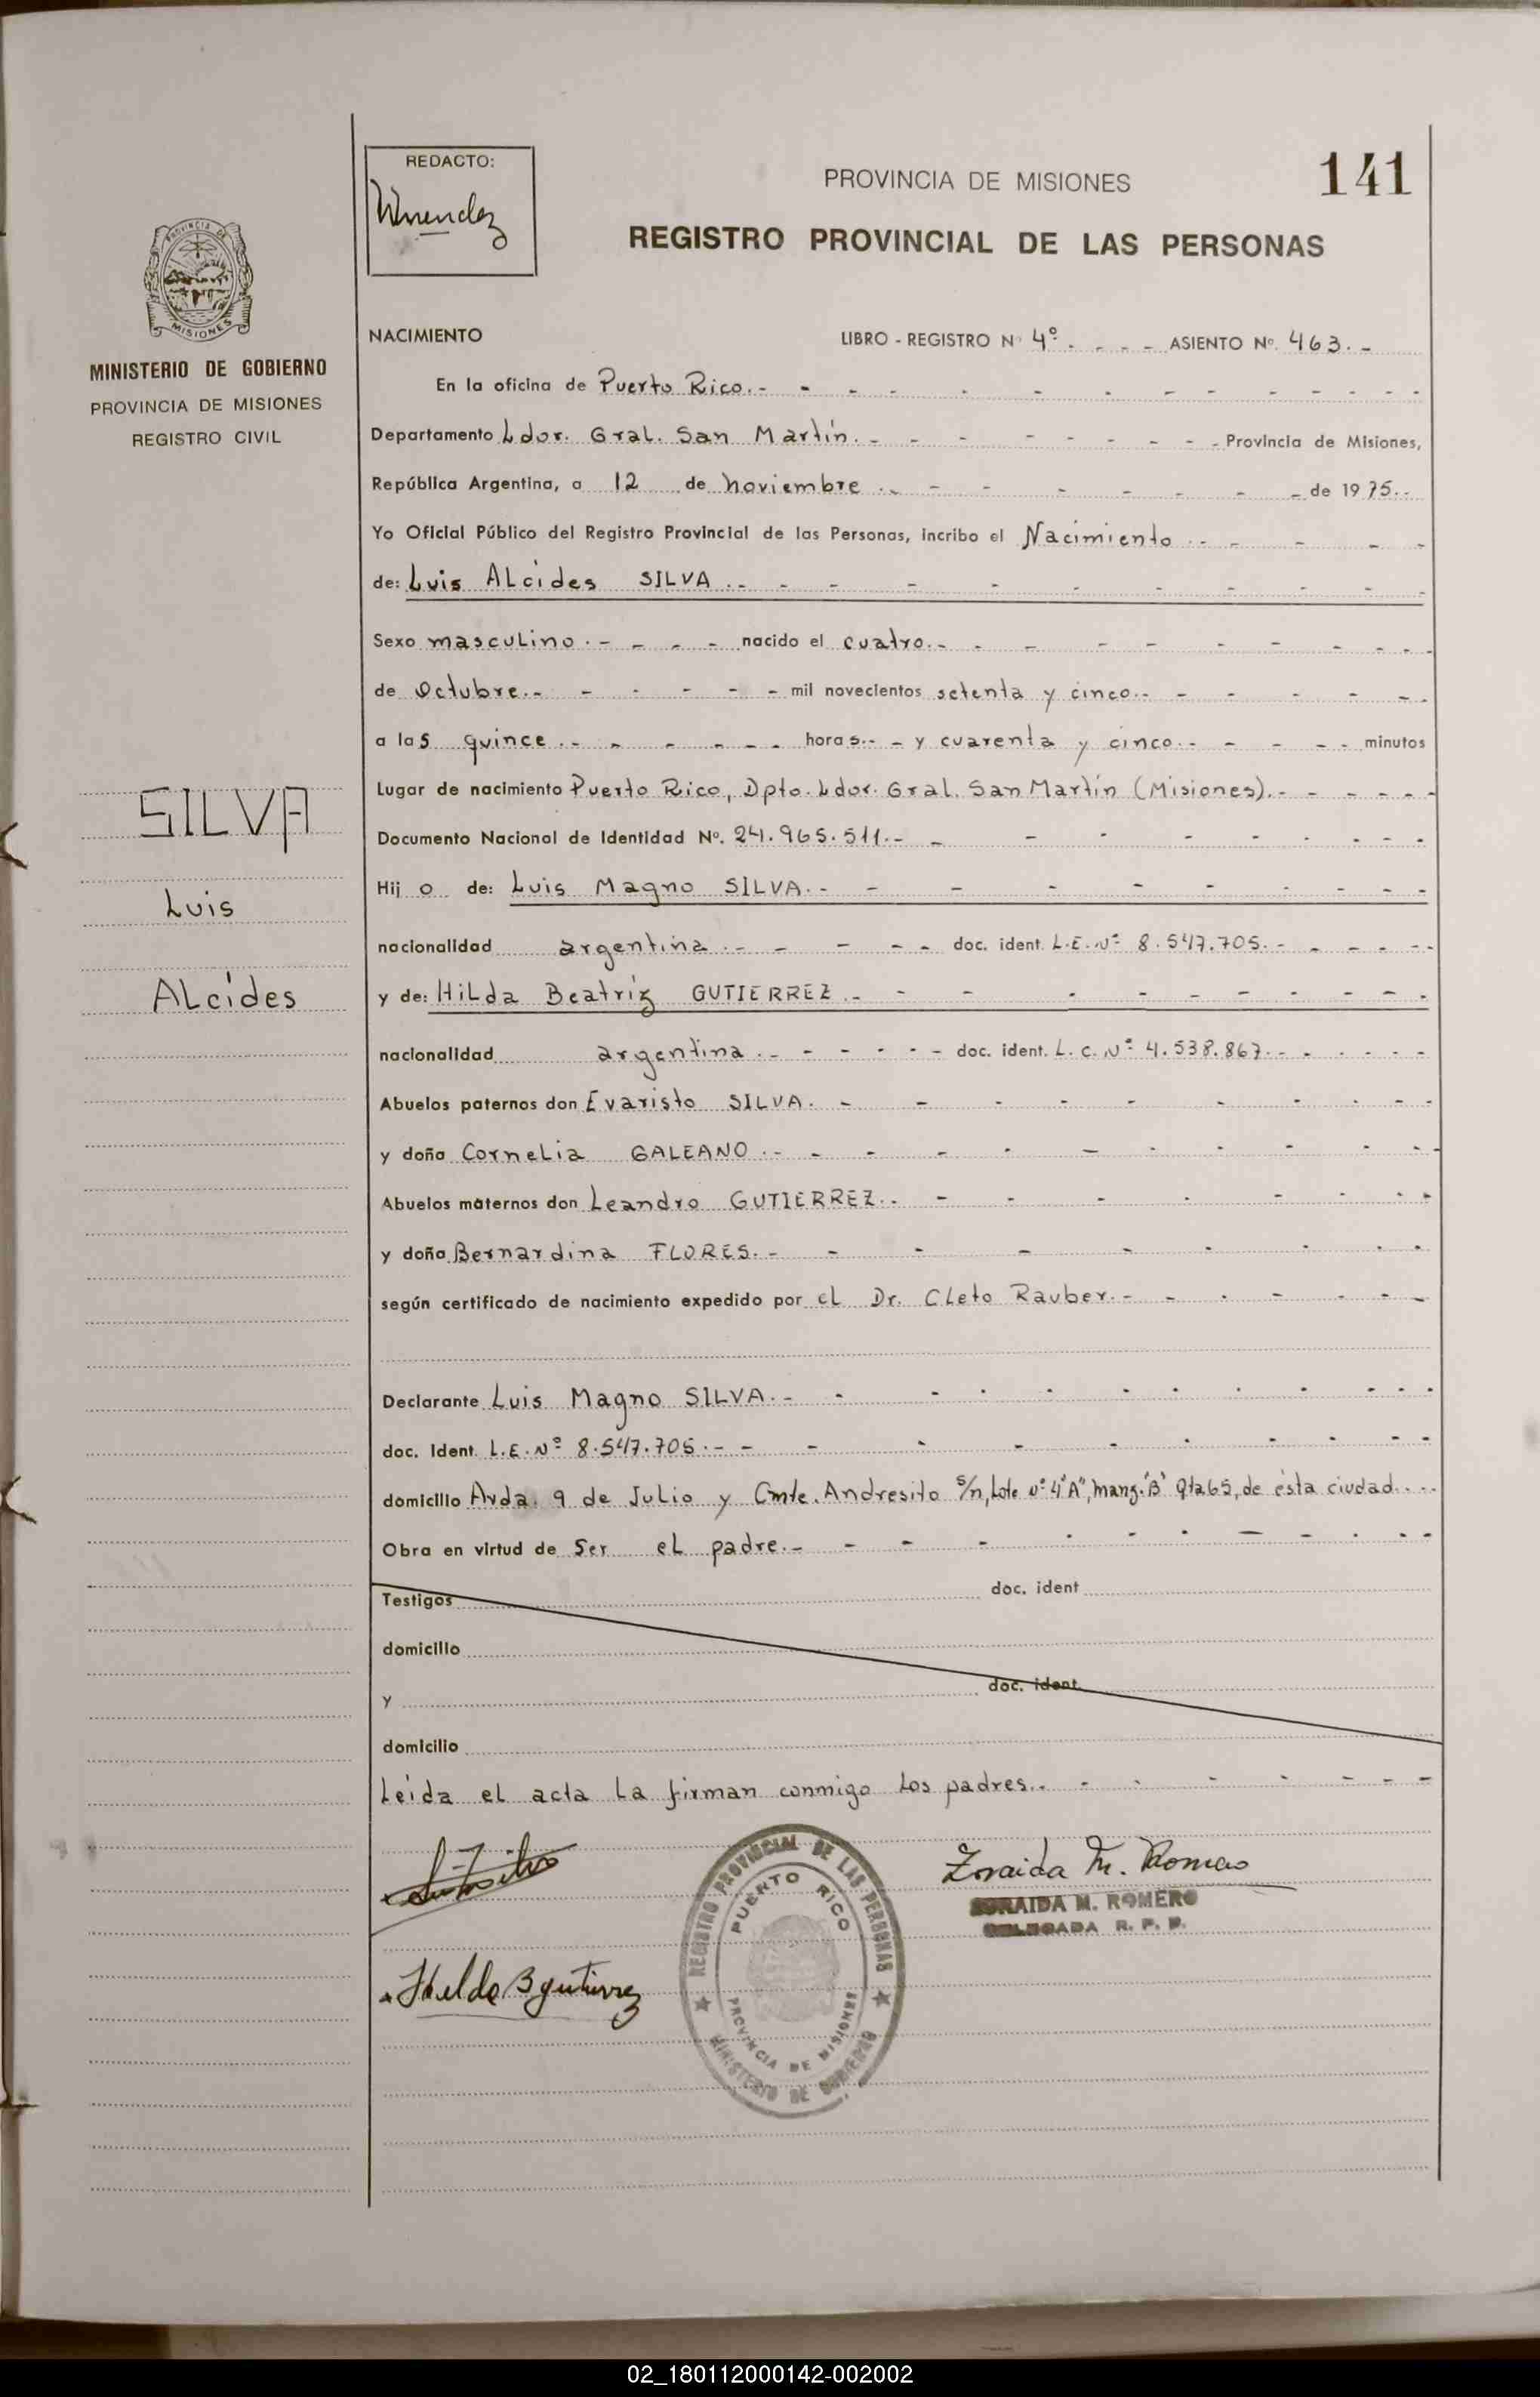 REDACTO:
PROVINCIA DE MISIONES
141
REGISTRO PROVINCIAL DE LAS PERSONAS
PROVINCIA DE
MISIONES
MINISTERIO DE GOBIERNO
PROVINCIA DE MISIONES
REGISTRO CIVIL
SILVA
Luis
ALcídes
NACIMIENTO LIBRO - REGISTRO Nº 4º. - - - ASIENTO Nº. 463. -
En la oficina de Puerto Rico.-
Departamento Ldor. Gral. San Martín. - Provincia de Misiones,
República Argentina, a 12 de noviembre .- de 1975.-
Yo Oficial Público del Registro Provincial de las Personas, incribo el Nacimiento .-
de: Luis ALcídes SILVA .-
Sexo mascuLino .- nacido el cuatro.-
de Octubre.- mil novecientos setenta y cinco.-
a las quince .- horas.- - y cuarenta y cinco.- minutos
Lugar de nacimiento Puerto Rico, Dpto. Ldor. Gral. San Martín (Misiones).-
Documento Nacional de Identidad Nº. 24.965.511.-
Hijo de: Luis Magno SILVA.-
nacionalidad argentina .- doc. ident. L.E. Nº 8.547.705.-
y de: HiLda Beatríz GUTIERREZ .-
nacionalidad argentina .- doc. ident. L.C. Nº 4.538.867.-
Abuelos paternos don Evaristo SILVA. -
y doña CorneLia GALEANO .-
Abuelos maternos don Leandro GUTIERREZ.-
y doña Bernardina FLORES. -
según certificado de nacimiento expedido por eL Dr. CLeto Rauber.-
Declarante Luis Magno SILVA.-
doc. Ident. L.E. Nº 8.547.705.-
domicilio Avda. 9 de Julio y Cmte. Andresito s/n, Lote Nº 4 "A", manz. "B" Qta 65, de ésta ciudad.-
Obra en virtud de Ser eL padre.-
Testigos doc. ident
domicilio
y doc. ident
domicilio
Leída el acta La firman conmigo Los padres.-
Zoraida M. Romero
ZORAIDA M. ROMERO
DELEGADA R. P. P.
Hilda B gutierrez
REGISTRO PROVINCIAL DE LAS PERSONAS
PUERTO RICO
PROVINCIA DE MISIONES
MINISTERIO DE GOBIERNO
02_180112000142-002002